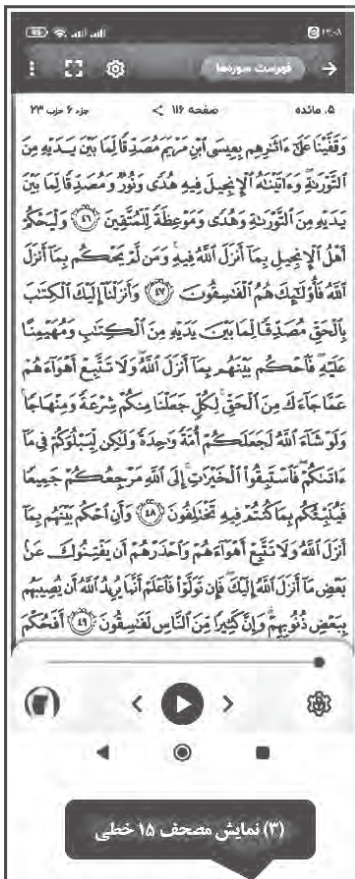 ۱۳:۰۸
فهرست سوره‌ها
۵. مائده صفحه ۱۱۶ جزء ۶ حزب ۲۳
وَقَفَّيْنَا عَلَىٰٓ ءَاثَٰرِهِم بِعِيسَى ٱبْنِ مَرْيَمَ مُصَدِّقًا لِّمَا بَيْنَ يَدَيْهِ مِنَ
ٱلتَّوْرَىٰةِ وَءَاتَيْنَٰهُ ٱلْإِنجِيلَ فِيهِ هُدًى وَنُورٌ وَمُصَدِّقًا لِّمَا بَيْنَ
يَدَيْهِ مِنَ ٱلتَّوْرَىٰةِ وَهُدًى وَمَوْعِظَةً لِّلْمُتَّقِينَ ۝٤٦ وَلْيَحْكُمْ
أَهْلُ ٱلْإِنجِيلِ بِمَآ أَنزَلَ ٱللَّهُ فِيهِ وَمَن لَّمْ يَحْكُم بِمَآ أَنزَلَ
ٱللَّهُ فَأُو۟لَٰٓئِكَ هُمُ ٱلْفَٰسِقُونَ ۝٤٧ وَأَنزَلْنَآ إِلَيْكَ ٱلْكِتَٰبَ
بِٱلْحَقِّ مُصَدِّقًا لِّمَا بَيْنَ يَدَيْهِ مِنَ ٱلْكِتَٰبِ وَمُهَيْمِنًا
عَلَيْهِ فَٱحْكُم بَيْنَهُم بِمَآ أَنزَلَ ٱللَّهُ وَلَا تَتَّبِعْ أَهْوَآءَهُمْ
عَمَّا جَآءَكَ مِنَ ٱلْحَقِّ لِكُلٍّ جَعَلْنَا مِنكُمْ شِرْعَةً وَمِنْهَاجًا
وَلَوْ شَآءَ ٱللَّهُ لَجَعَلَكُمْ أُمَّةً وَٰحِدَةً وَلَٰكِن لِّيَبْلُوَكُمْ فِى مَآ
ءَاتَىٰكُمْ فَٱسْتَبِقُوا۟ ٱلْخَيْرَٰتِ إِلَى ٱللَّهِ مَرْجِعُكُمْ جَمِيعًا
فَيُنَبِّئُكُم بِمَا كُنتُمْ فِيهِ تَخْتَلِفُونَ ۝٤٨ وَأَنِ ٱحْكُم بَيْنَهُم بِمَآ
أَنزَلَ ٱللَّهُ وَلَا تَتَّبِعْ أَهْوَآءَهُمْ وَٱحْذَرْهُمْ أَن يَفْتِنُوكَ عَنۢ
بَعْضِ مَآ أَنزَلَ ٱللَّهُ إِلَيْكَ فَإِن تَوَلَّوْا۟ فَٱعْلَمْ أَنَّمَا يُرِيدُ ٱللَّهُ أَن يُصِيبَهُم
بِبَعْضِ ذُنُوبِهِمْ وَإِنَّ كَثِيرًا مِّنَ ٱلنَّاسِ لَفَٰسِقُونَ ۝٤٩ أَفَحُكْمَ
(۳) نمایش مصحف ۱۵ خطی